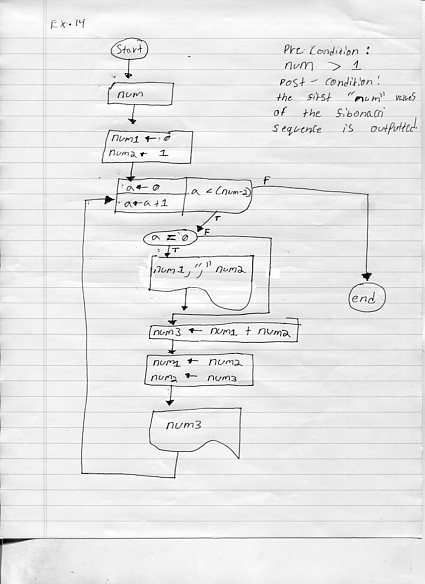 Ex. 14
Start
Pre Condition:
num > 1
Post-Condition:
the first "num" values
of the fibonacci
sequence is outputted.
num
num1 ← 0
num2 ← 1
a ← 0
a ← a + 1
a < (num-2)
F
T
a = 0
F
T
num1, "," num2
end
num3 ← num1 + num2
num1 ← num2
num2 ← num3
num3